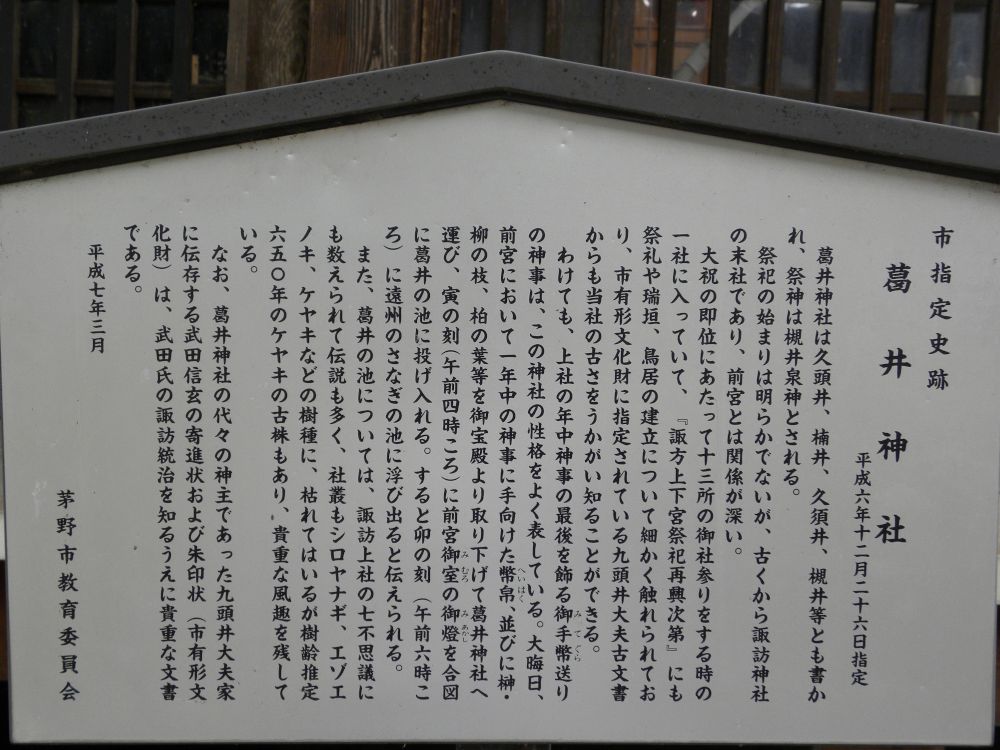 市指定史跡
葛井神社
平成六年十二月二十六日指定
葛井神社は久頭井、楠井、久須井、槻井等とも書か
れ、祭神は槻井泉神とされる。
祭祀の始まりは明らかでないが、古くから諏訪神社
の末社であり、前宮とは関係が深い。
大祝の即位にあたって十三所の御社参りをする時の
一社に入っていて、『諏方上下宮祭祀再興次第』にも
祭礼や瑞垣、鳥居の建立について細かく触れられてお
り、市有形文化財に指定されている九頭井大夫古文書
からも当社の古さをうかがい知ることができる。
わけても、上社の年中神事の最後を飾る御手幣送り
の神事は、この神社の性格をよく表している。大晦日、
前宮において一年中の神事に手向けた幣帛、並びに榊・
柳の枝、柏の葉等を御宝殿より取り下げて葛井神社へ
運び、寅の刻(午前四時ころ)に前宮御室の御燈を合図
に葛井の池に投げ入れる。すると卯の刻(午前六時こ
ろ)に遠州のさなぎの池に浮び出ると伝えられる。
また、葛井の池については、諏訪上社の七不思議に
も数えられて伝説も多く、社叢もシロヤナギ、エゾエ
ノキ、ケヤキなどの樹種に、枯れてはいるが樹齢推定
六五〇年のケヤキの古株もあり、貴重な風趣を残して
いる。
なお、葛井神社の代々の神主であった九頭井大夫家
に伝存する武田信玄の寄進状および朱印状(市有形文
化財)は、武田氏の諏訪統治を知るうえに貴重な文書
である。
平成七年三月
茅野市教育委員会